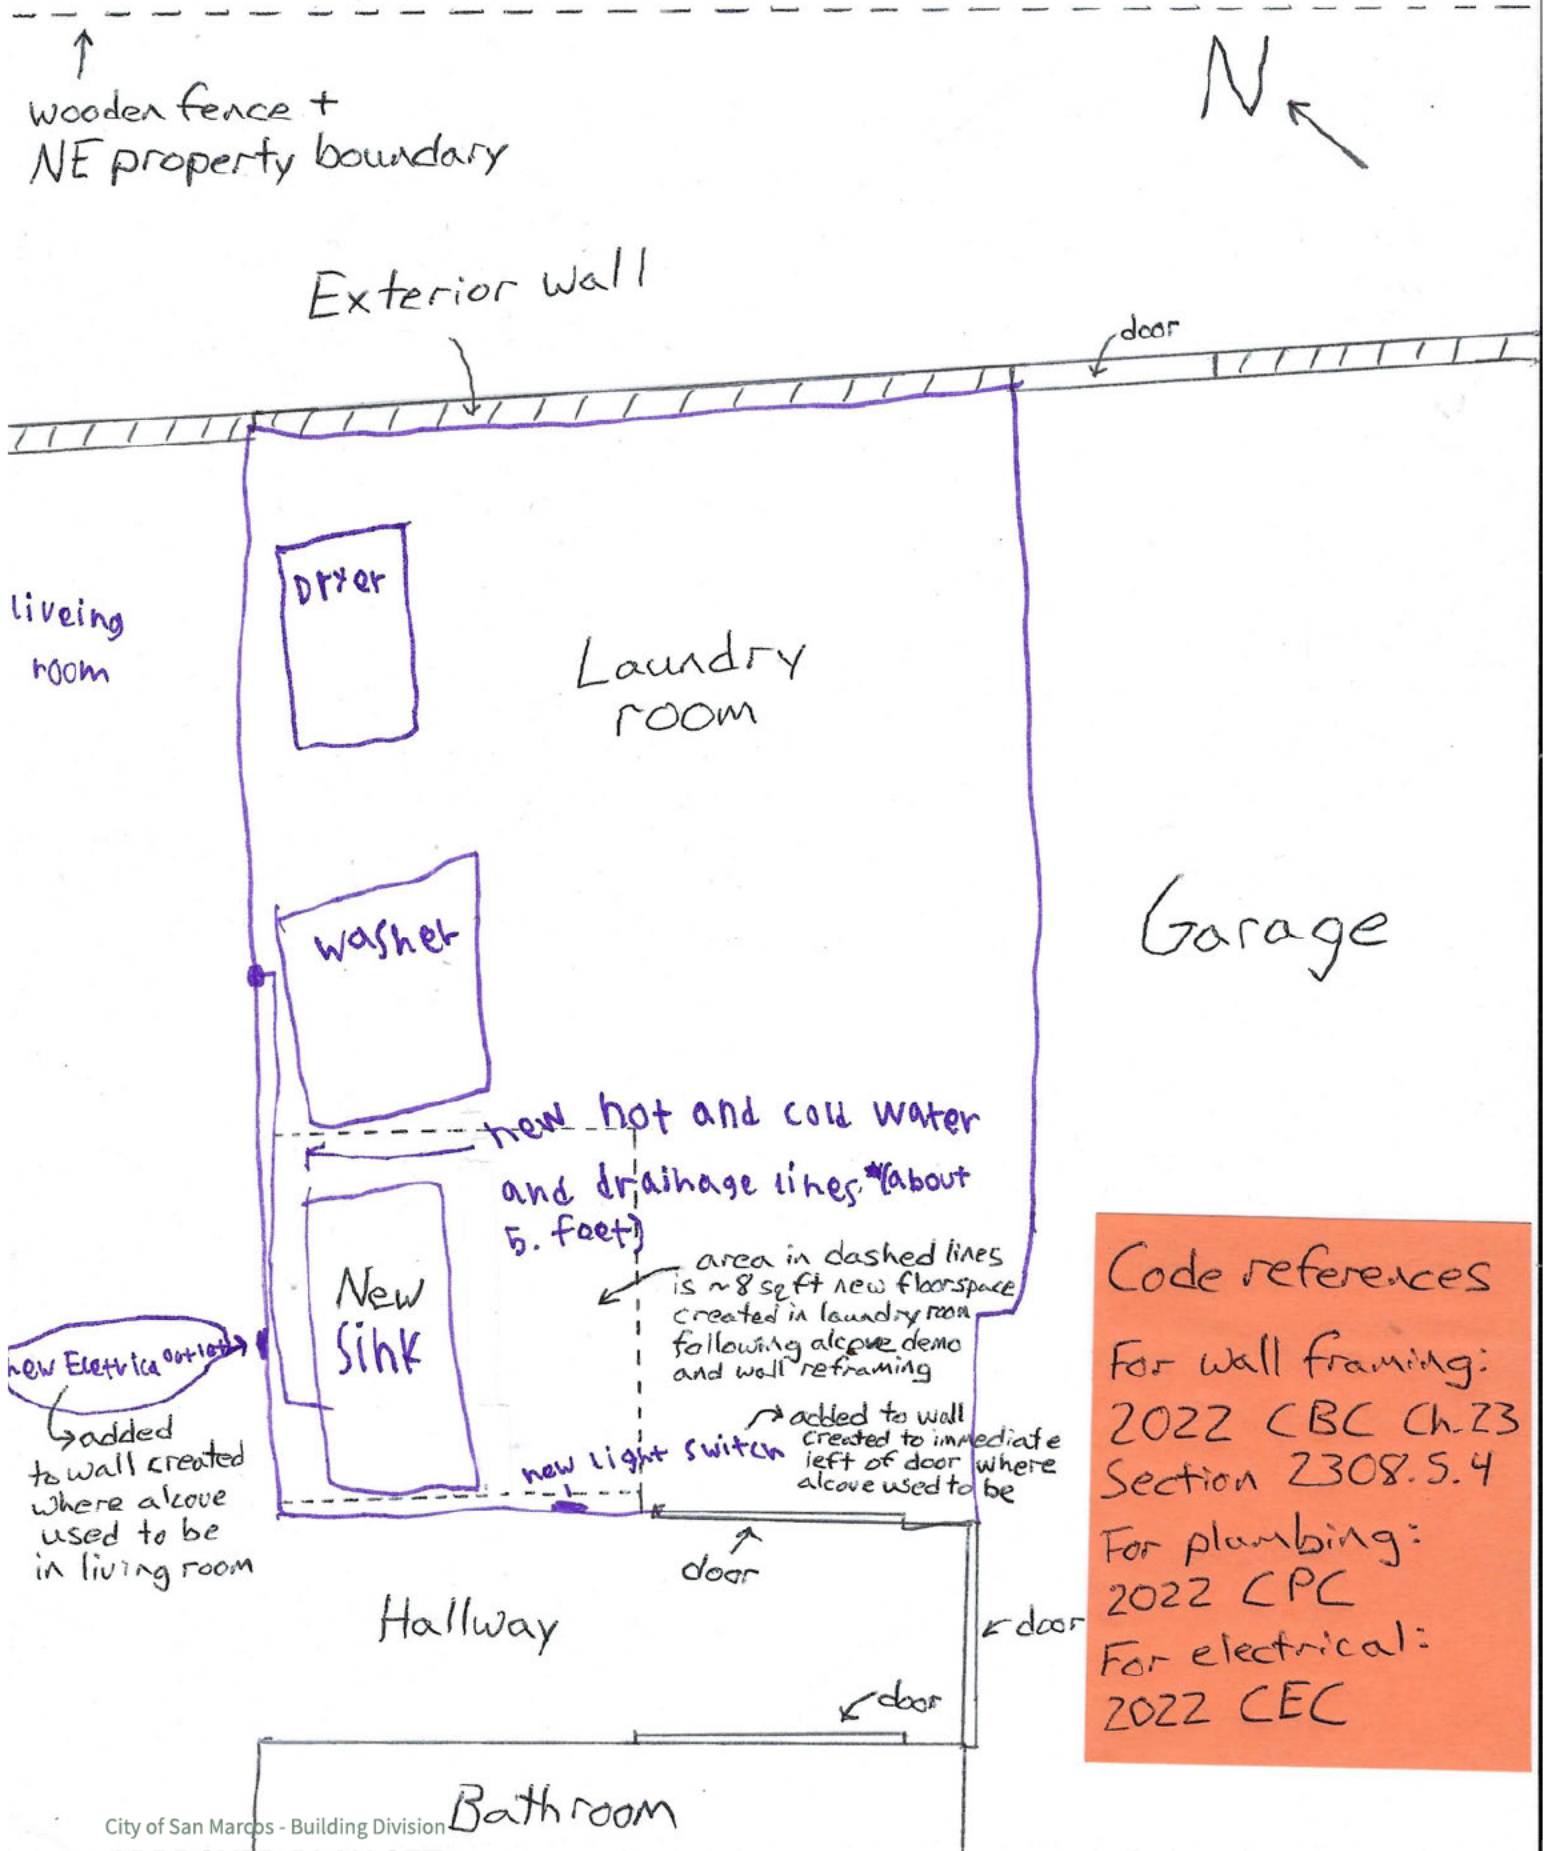 wooden fence +
NE property boundary
N
Exterior wall
door
liveing
room
Dryer
Laundry
room
washer
Garage
new hot and cold water
and drainage lines *(about
5. feet)
New
Sink
area in dashed lines
is ~8 sq ft new floorspace
created in laundry room
following alcove demo
and wall reframing
new Eletrica outlet
added
to wall created
where alcove
used to be
in living room
new light switch
added to wall
created to immediate
left of door where
alcove used to be
door
Hallway
door
door
Bathroom
Code references
For wall framing:
2022 CBC Ch. 23
Section 2308.5.4
For plumbing:
2022 CPC
For electrical:
2022 CEC
City of San Marcos - Building Division